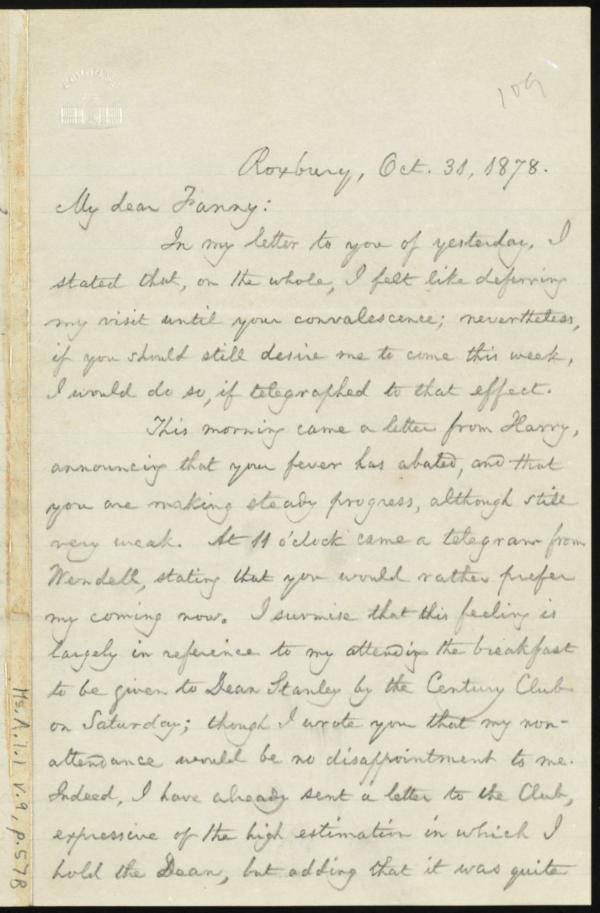 109
Roxbury, Oct. 31, 1878.
My dear Fanny:
In my letter to you of yesterday, I
stated that, on the whole, I felt like deferring
my visit until your convalescence; nevertheless,
if you should still desire me to come this week,
I would do so, if telegraphed to that effect.
This morning came a letter from Harry,
announcing that your fever has abated, and that
you are making steady progress, although still
very weak. At 11 o'clock came a telegram from
Wendell, stating that you would rather prefer
my coming now. I surmise that this feeling is
largely in reference to my attending the breakfast
to be given to Dean Stanley by the Century Club
on Saturday; though I wrote you that my non-
attendance would be no disappointment to me.
Indeed, I have already sent a letter to the Club,
expressive of the high estimation in which I
hold the Dean, but adding that it was quite
Ms.A.1.1 V.9, p.57B